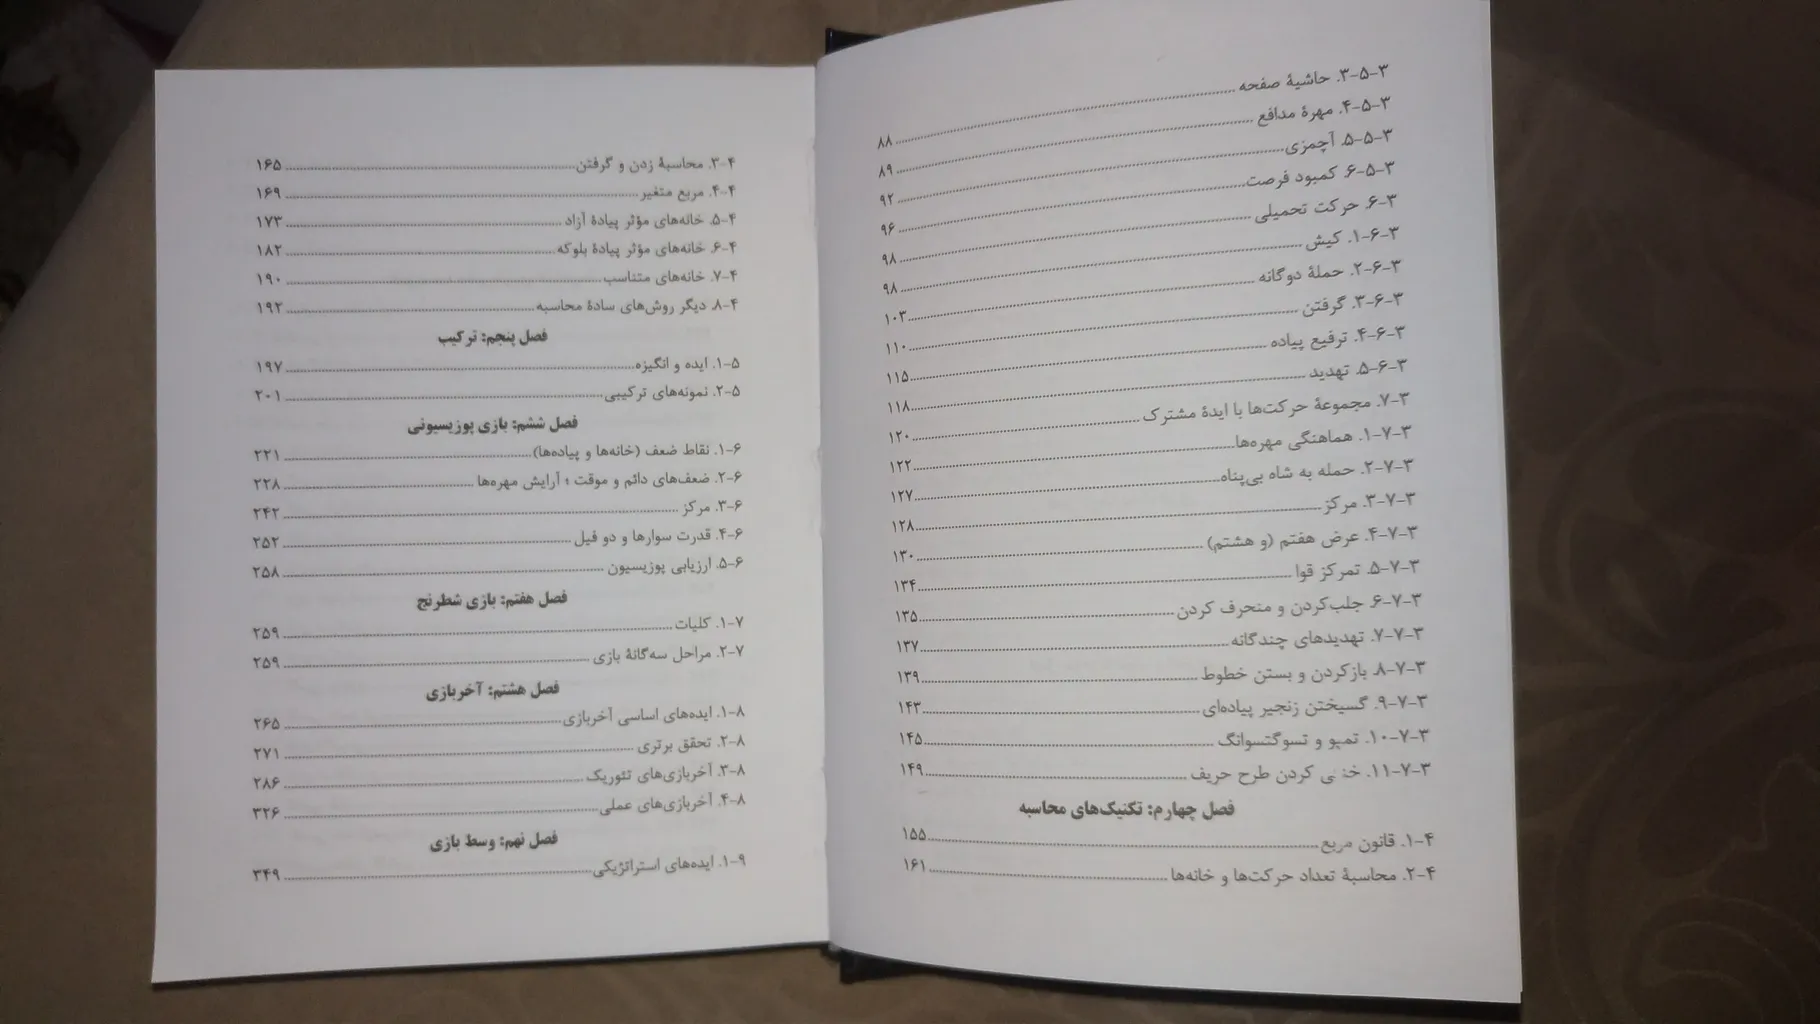 ۳-۵-۳. حاشیهٔ صفحه ........ ۸۸
۳-۵-۴. مهرهٔ مدافع ........ ۸۹
۳-۵-۵. آچمزی ........ ۹۲
۳-۵-۶. کمبود فرصت ........ ۹۶
۳-۶. حرکت تحمیلی ........ ۹۸
۳-۶-۱. کیش ........ ۹۸
۳-۶-۲. حملهٔ دوگانه ........ ۱۰۳
۳-۶-۳. گرفتن ........ ۱۱۰
۳-۶-۴. ترفیع پیاده ........ ۱۱۵
۳-۶-۵. تهدید ........ ۱۱۸
۳-۷. مجموعهٔ حرکت‌ها با ایدهٔ مشترک ........ ۱۲۰
۳-۷-۱. هماهنگی مهره‌ها ........ ۱۲۲
۳-۷-۲. حمله به شاه بی‌پناه ........ ۱۲۷
۳-۷-۳. مرکز ........ ۱۲۸
۳-۷-۴. عرض هفتم (و هشتم) ........ ۱۳۰
۳-۷-۵. تمرکز قوا ........ ۱۳۴
۳-۷-۶. جلب‌کردن و منحرف کردن ........ ۱۳۵
۳-۷-۷. تهدیدهای چندگانه ........ ۱۳۷
۳-۷-۸. بازکردن و بستن خطوط ........ ۱۳۹
۳-۷-۹. گسیختن زنجیر پیاده‌ای ........ ۱۴۳
۳-۷-۱۰. تمپو و تسوگتسوانگ ........ ۱۴۵
۳-۷-۱۱. خنثی کردن طرح حریف ........ ۱۴۹
فصل چهارم: تکنیک‌های محاسبه
۴-۱. قانون مربع ........ ۱۵۵
۴-۲. محاسبهٔ تعداد حرکت‌ها و خانه‌ها ........ ۱۶۱
۴-۳. محاسبهٔ زدن و گرفتن ........ ۱۶۵
۴-۴. مربع متغیر ........ ۱۶۹
۴-۵. خانه‌های مؤثر پیادهٔ آزاد ........ ۱۷۳
۴-۶. خانه‌های مؤثر پیادهٔ بلوکه ........ ۱۸۲
۴-۷. خانه‌های متناسب ........ ۱۹۰
۴-۸. دیگر روش‌های سادهٔ محاسبه ........ ۱۹۲
فصل پنجم: ترکیب
۵-۱. ایده و انگیزه ........ ۱۹۷
۵-۲. نمونه‌های ترکیبی ........ ۲۰۱
فصل ششم: بازی پوزیسیونی
۶-۱. نقاط ضعف (خانه‌ها و پیاده‌ها) ........ ۲۲۱
۶-۲. ضعف‌های دائم و موقت ؛ آرایش مهره‌ها ........ ۲۲۸
۶-۳. مرکز ........ ۲۴۲
۶-۴. قدرت سوارها و دو فیل ........ ۲۵۲
۶-۵. ارزیابی پوزیسیون ........ ۲۵۸
فصل هفتم: بازی شطرنج
۷-۱. کلیات ........ ۲۵۹
۷-۲. مراحل سه‌گانهٔ بازی ........ ۲۵۹
فصل هشتم: آخربازی
۸-۱. ایده‌های اساسی آخربازی ........ ۲۶۵
۸-۲. تحقق برتری ........ ۲۷۱
۸-۳. آخربازی‌های تئوریک ........ ۲۸۶
۸-۴. آخربازی‌های عملی ........ ۳۲۶
فصل نهم: وسط بازی
۹-۱. ایده‌های استراتژیکی ........ ۳۴۹